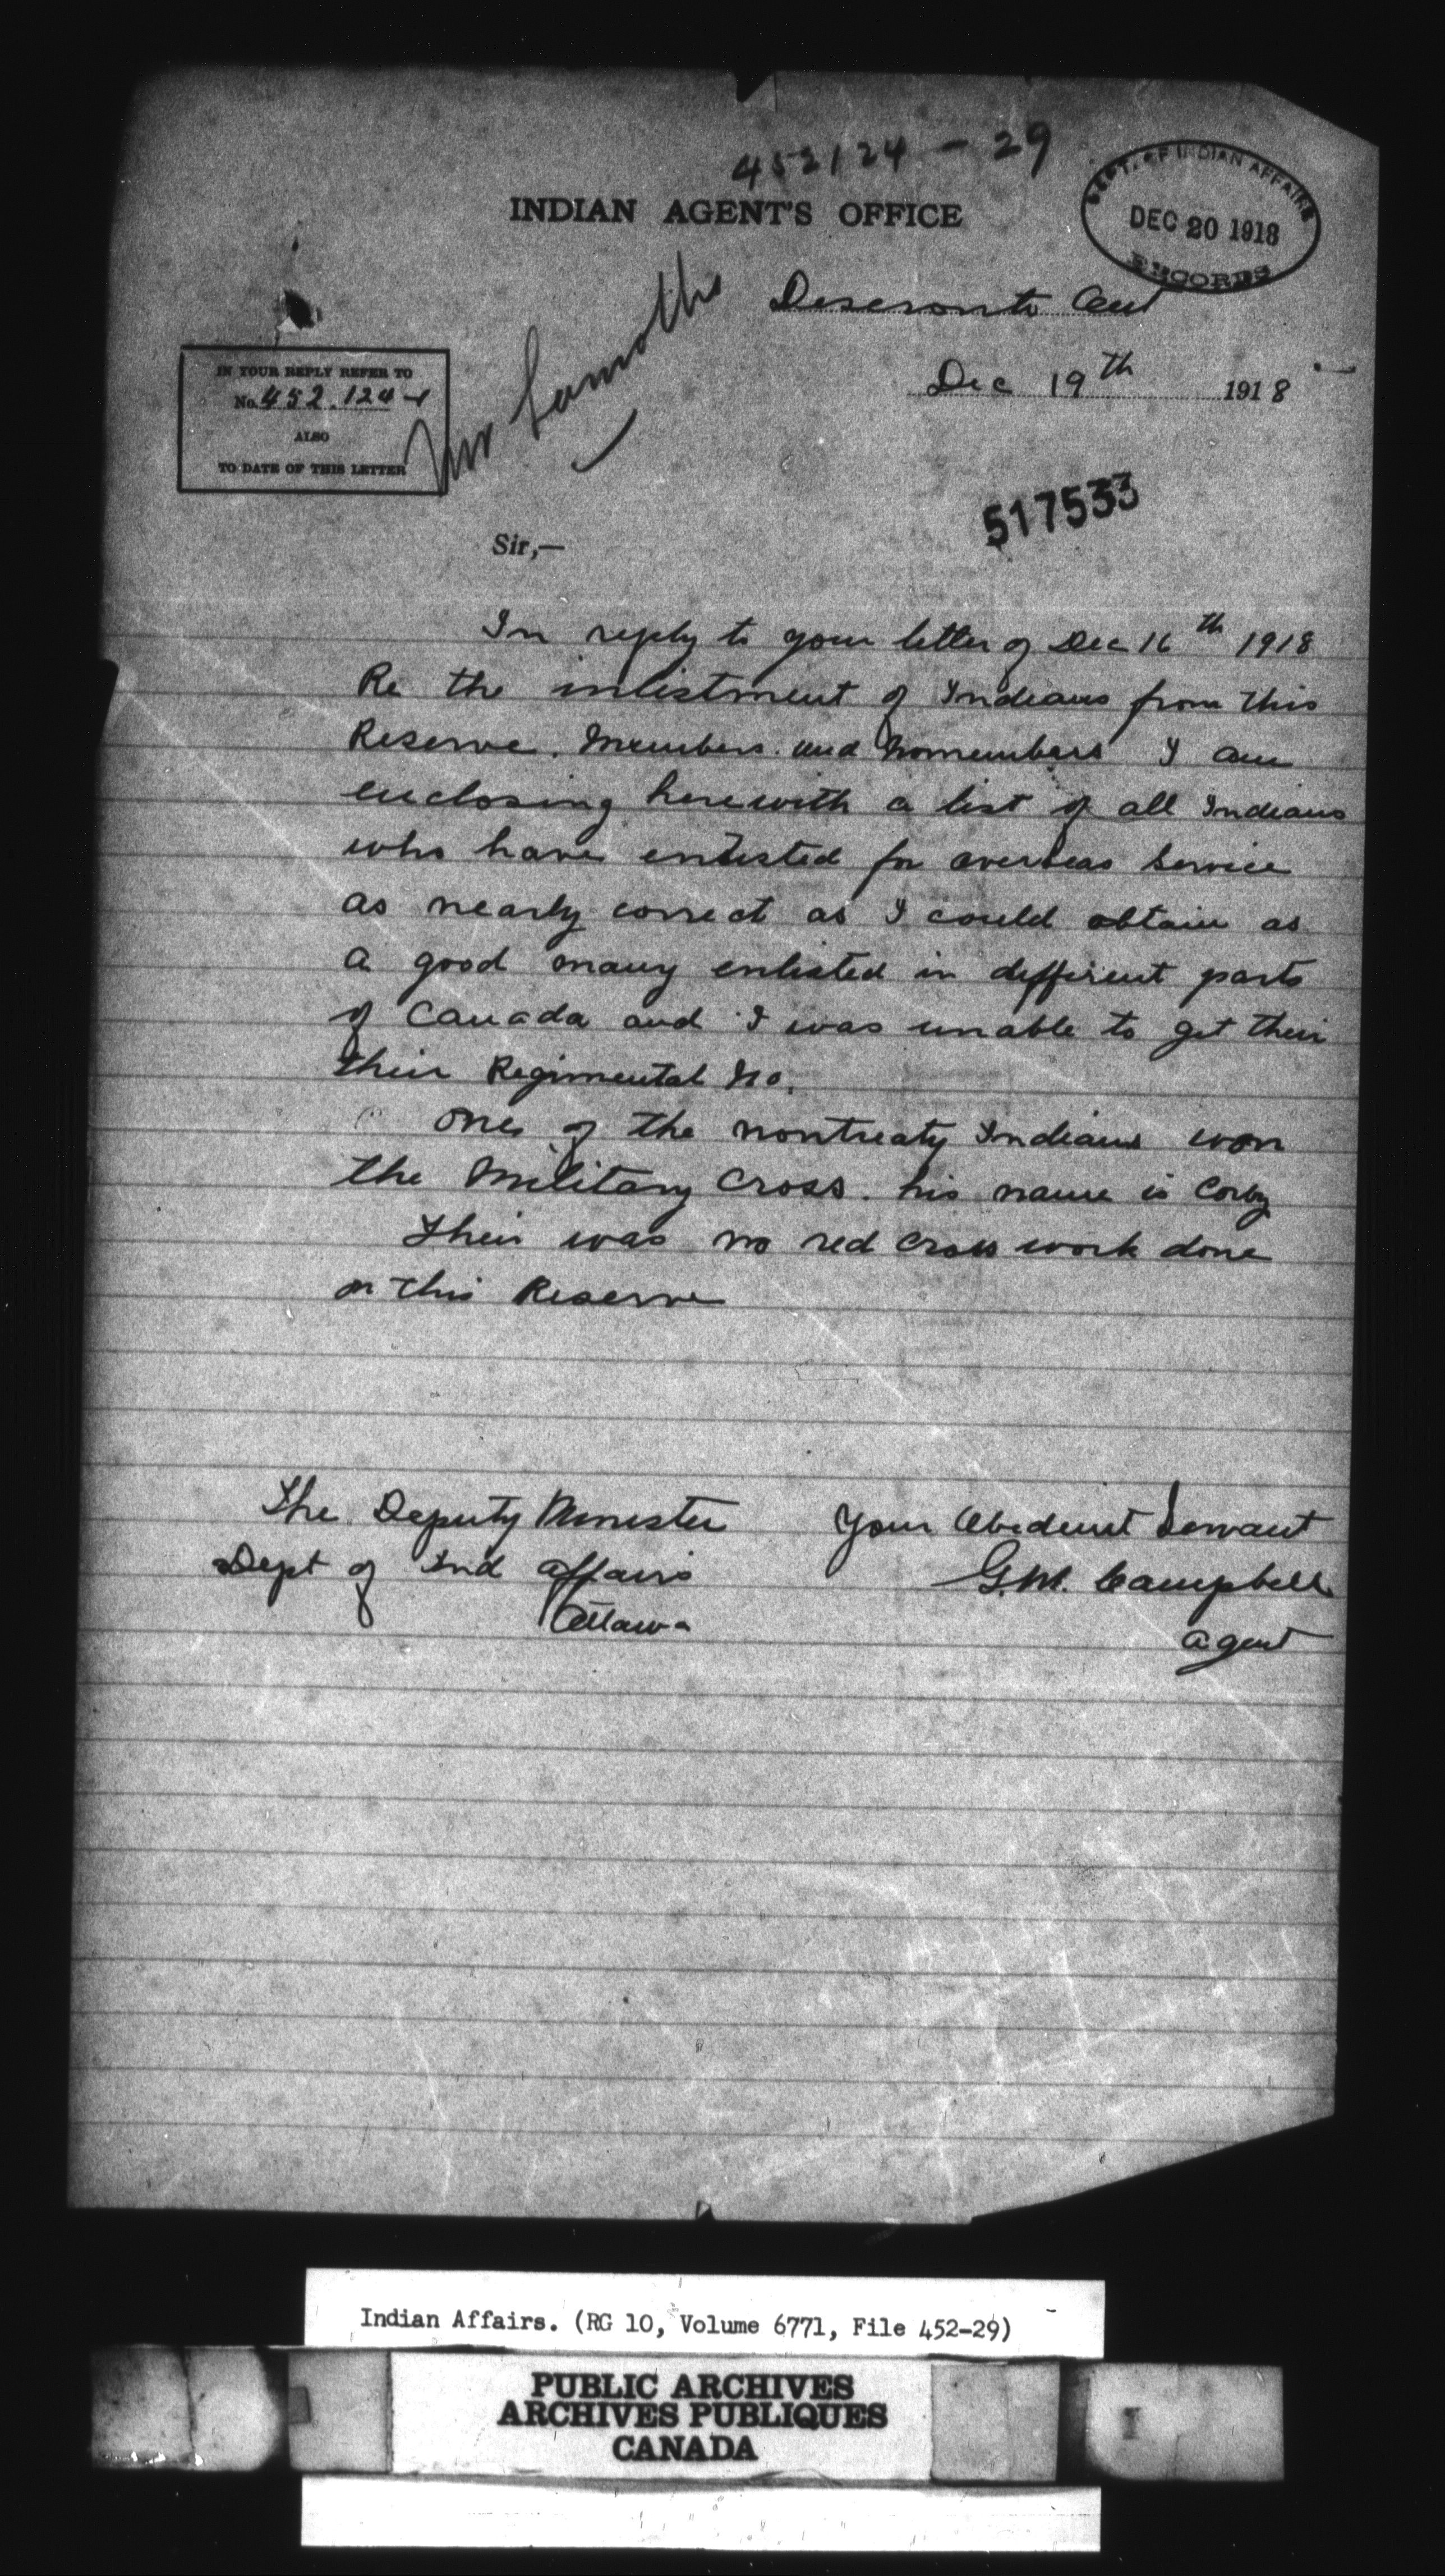 452124-29
INDIAN AGENT'S OFFICE
DEPT. OF INDIAN AFFAIRS
DEC 20 1918
RECORDS
Deseronto Ont
Dec 19th 1918
IN YOUR REPLY REFER TO
No. 452.124-1
ALSO
TO DATE OF THIS LETTER
Mr Lamothe
517533
Sir,—
In reply to your letter of Dec 16th 1918
Re the inlistment of Indians from this
Reserve. Members. and Nonmembers I am
enclosing herewith a list of all Indians
who have enlisted for overseas Service
as nearly correct as I could obtain as
a good many enlisted in different parts
of Canada and I was unable to get their
their Regimental No.
one of the nontreaty Indians won
the Military Cross. his name is Corby
Their was no red cross work done
on this Reserve
The Deputy Minister
Dept of Ind affairs
Ottawa
Your Obedient Servant
G.M. Campbell
agent
Indian Affairs. (RG 10, Volume 6771, File 452-29)
PUBLIC ARCHIVES
ARCHIVES PUBLIQUES
CANADA